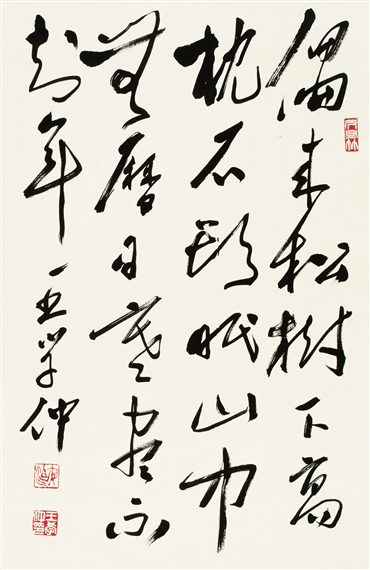 偶来松树下高
枕石头眠山中
无历日寒尽不
知年 王学仲